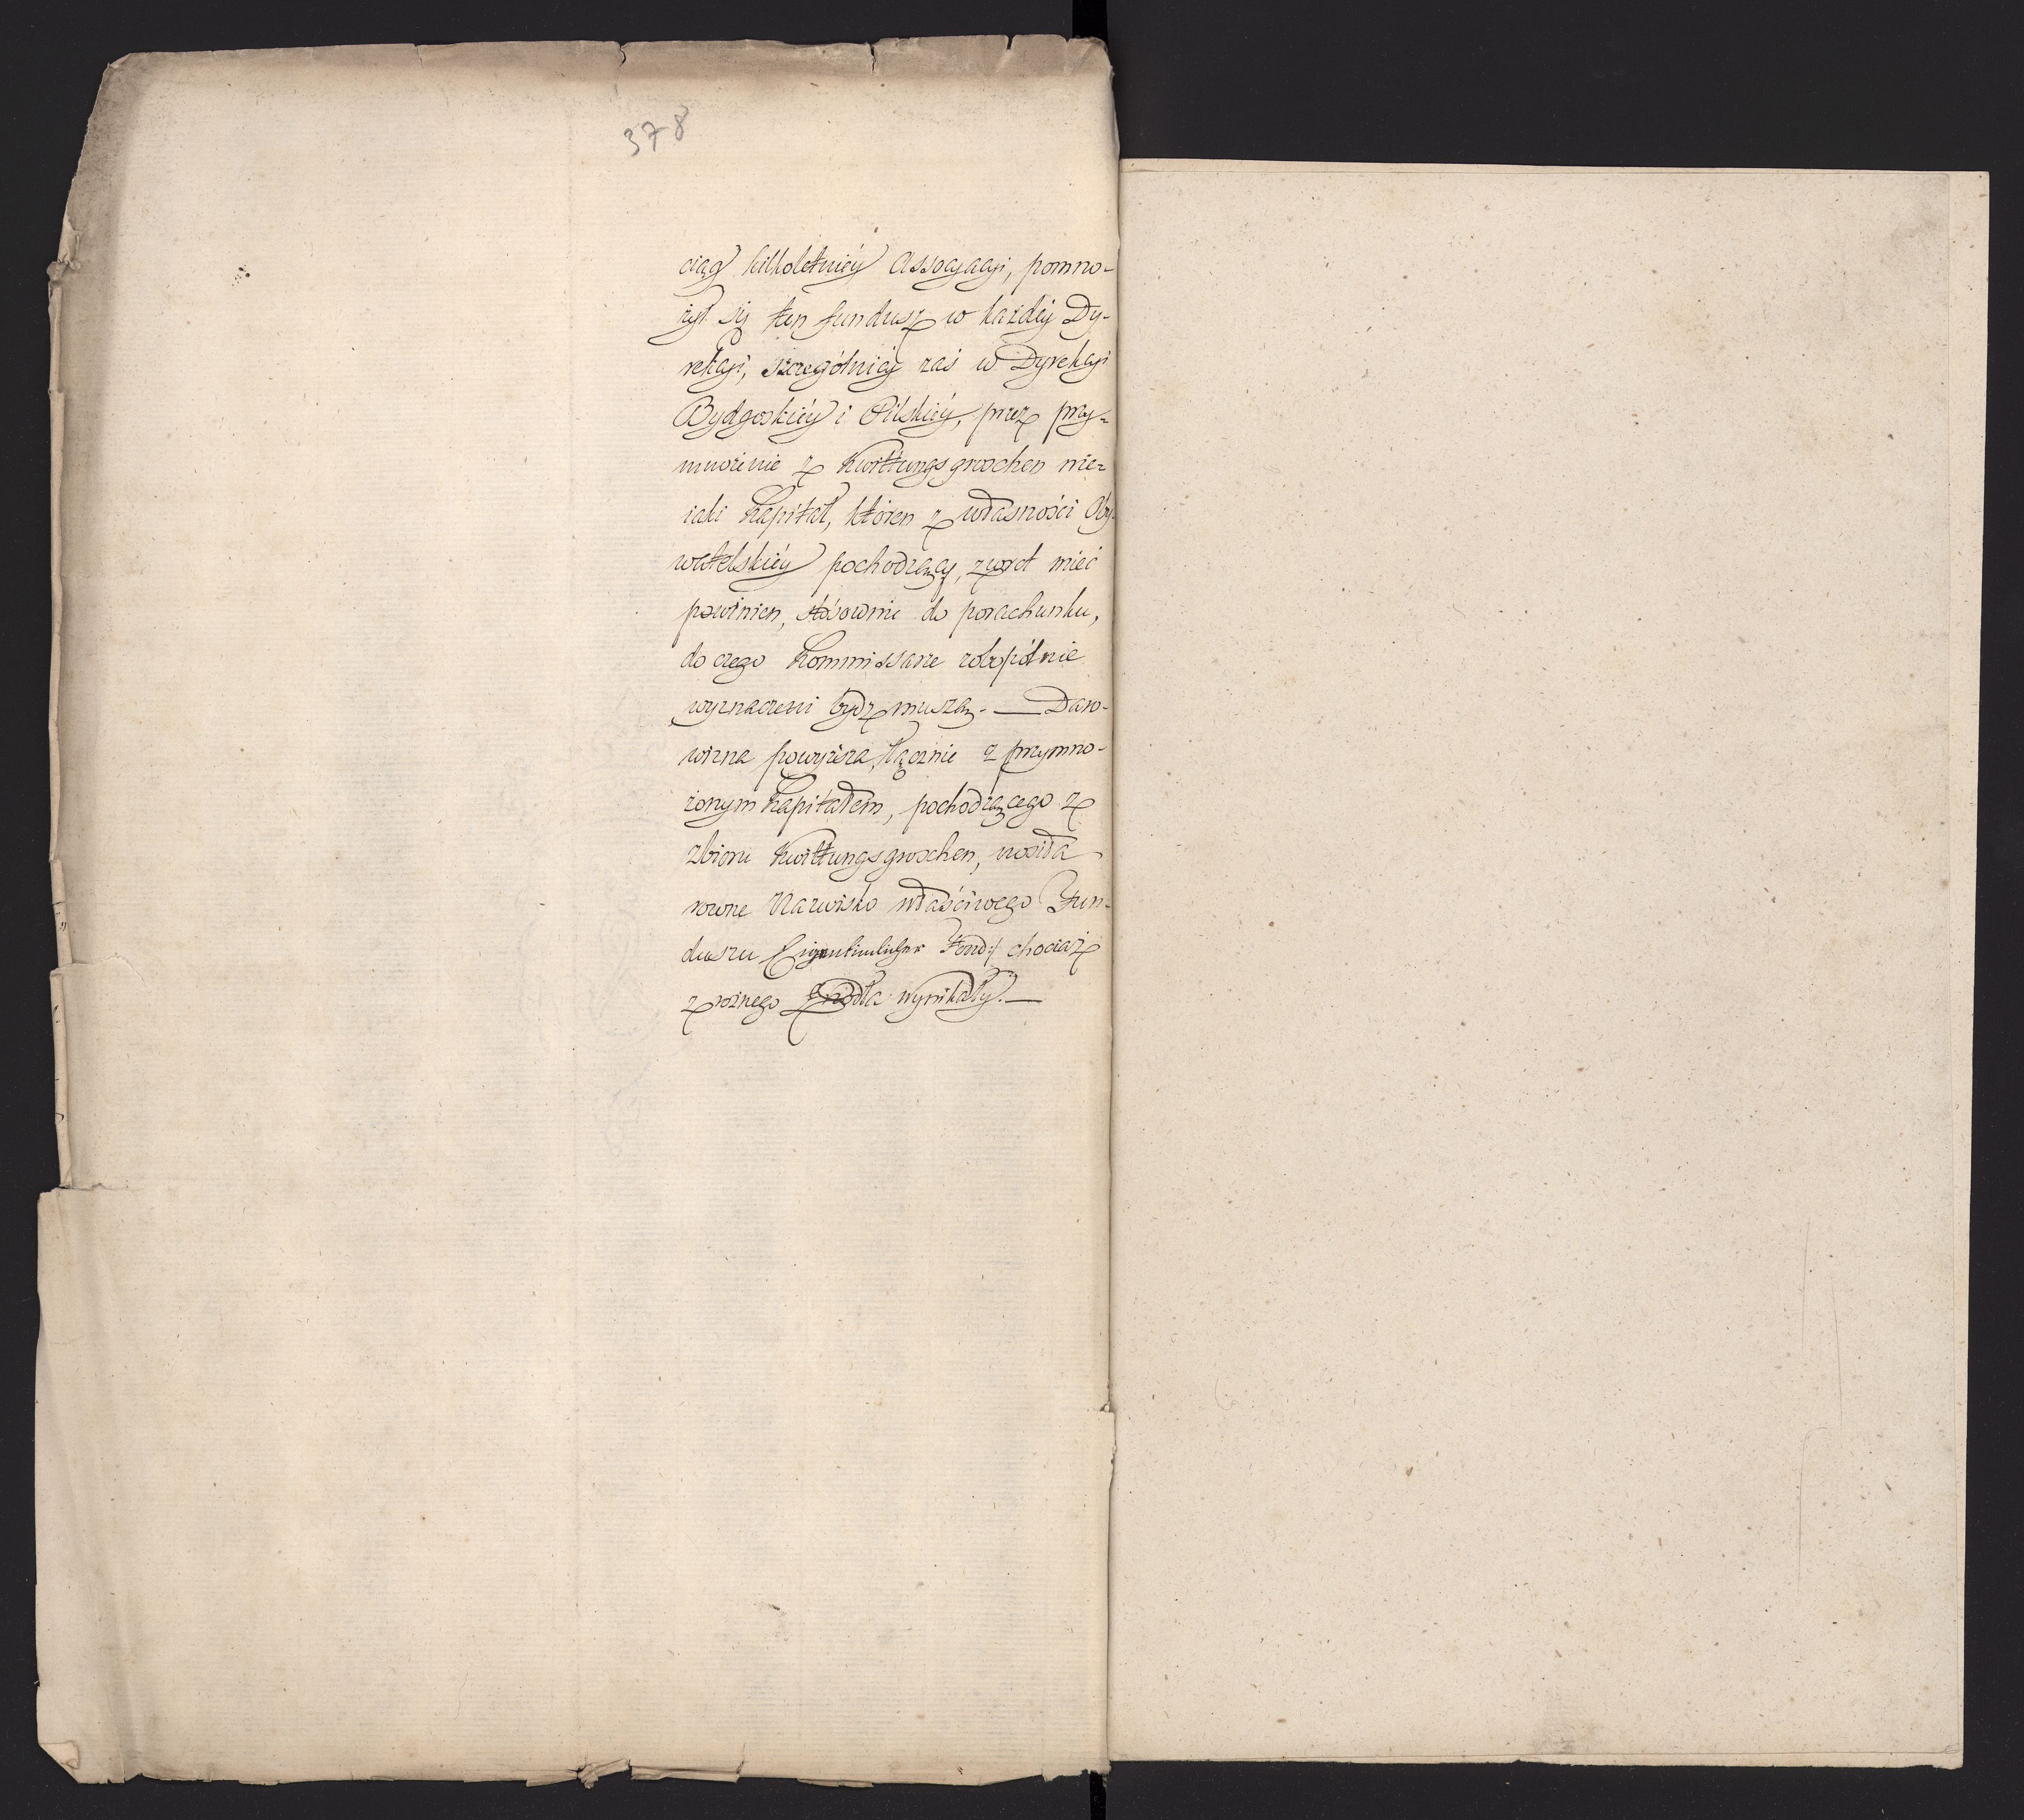 378
ciąg kilkoletniéy Assocyacyi, pomno-
żył się ten fundusz w każdéy Dy-
rekcyi, szczególniéy zaś w Dyrekcyi
Bydgoskiéy i Pilskiéy, przez przy-
mnożenie z Kwittungsgroschen nie-
iaki Kapitał, któren z własności Oby-
watelskiéy pochodzący, zwrot mieć
powinien, stósownie do porachunku,
do czego Kommissarze zobopólnie
wyznaczeni bydz muszą. — Daro-
wizna powyższa, łącznie z przymno-
żonym Kapitałem, pochodzącego z
zbioru Kwittungsgroschen, nosiła
rowne Nazwisko właściwego Fun-
duszu Eigenthümlicher Fond :/ chociaż
z rożnego źrzodła wynikały. —